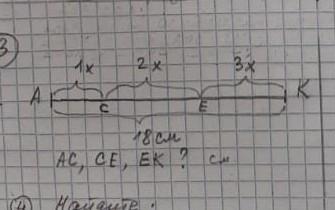 3
1x 2x 3x
A C E K
18 см
AC, CE, EK ? см
4